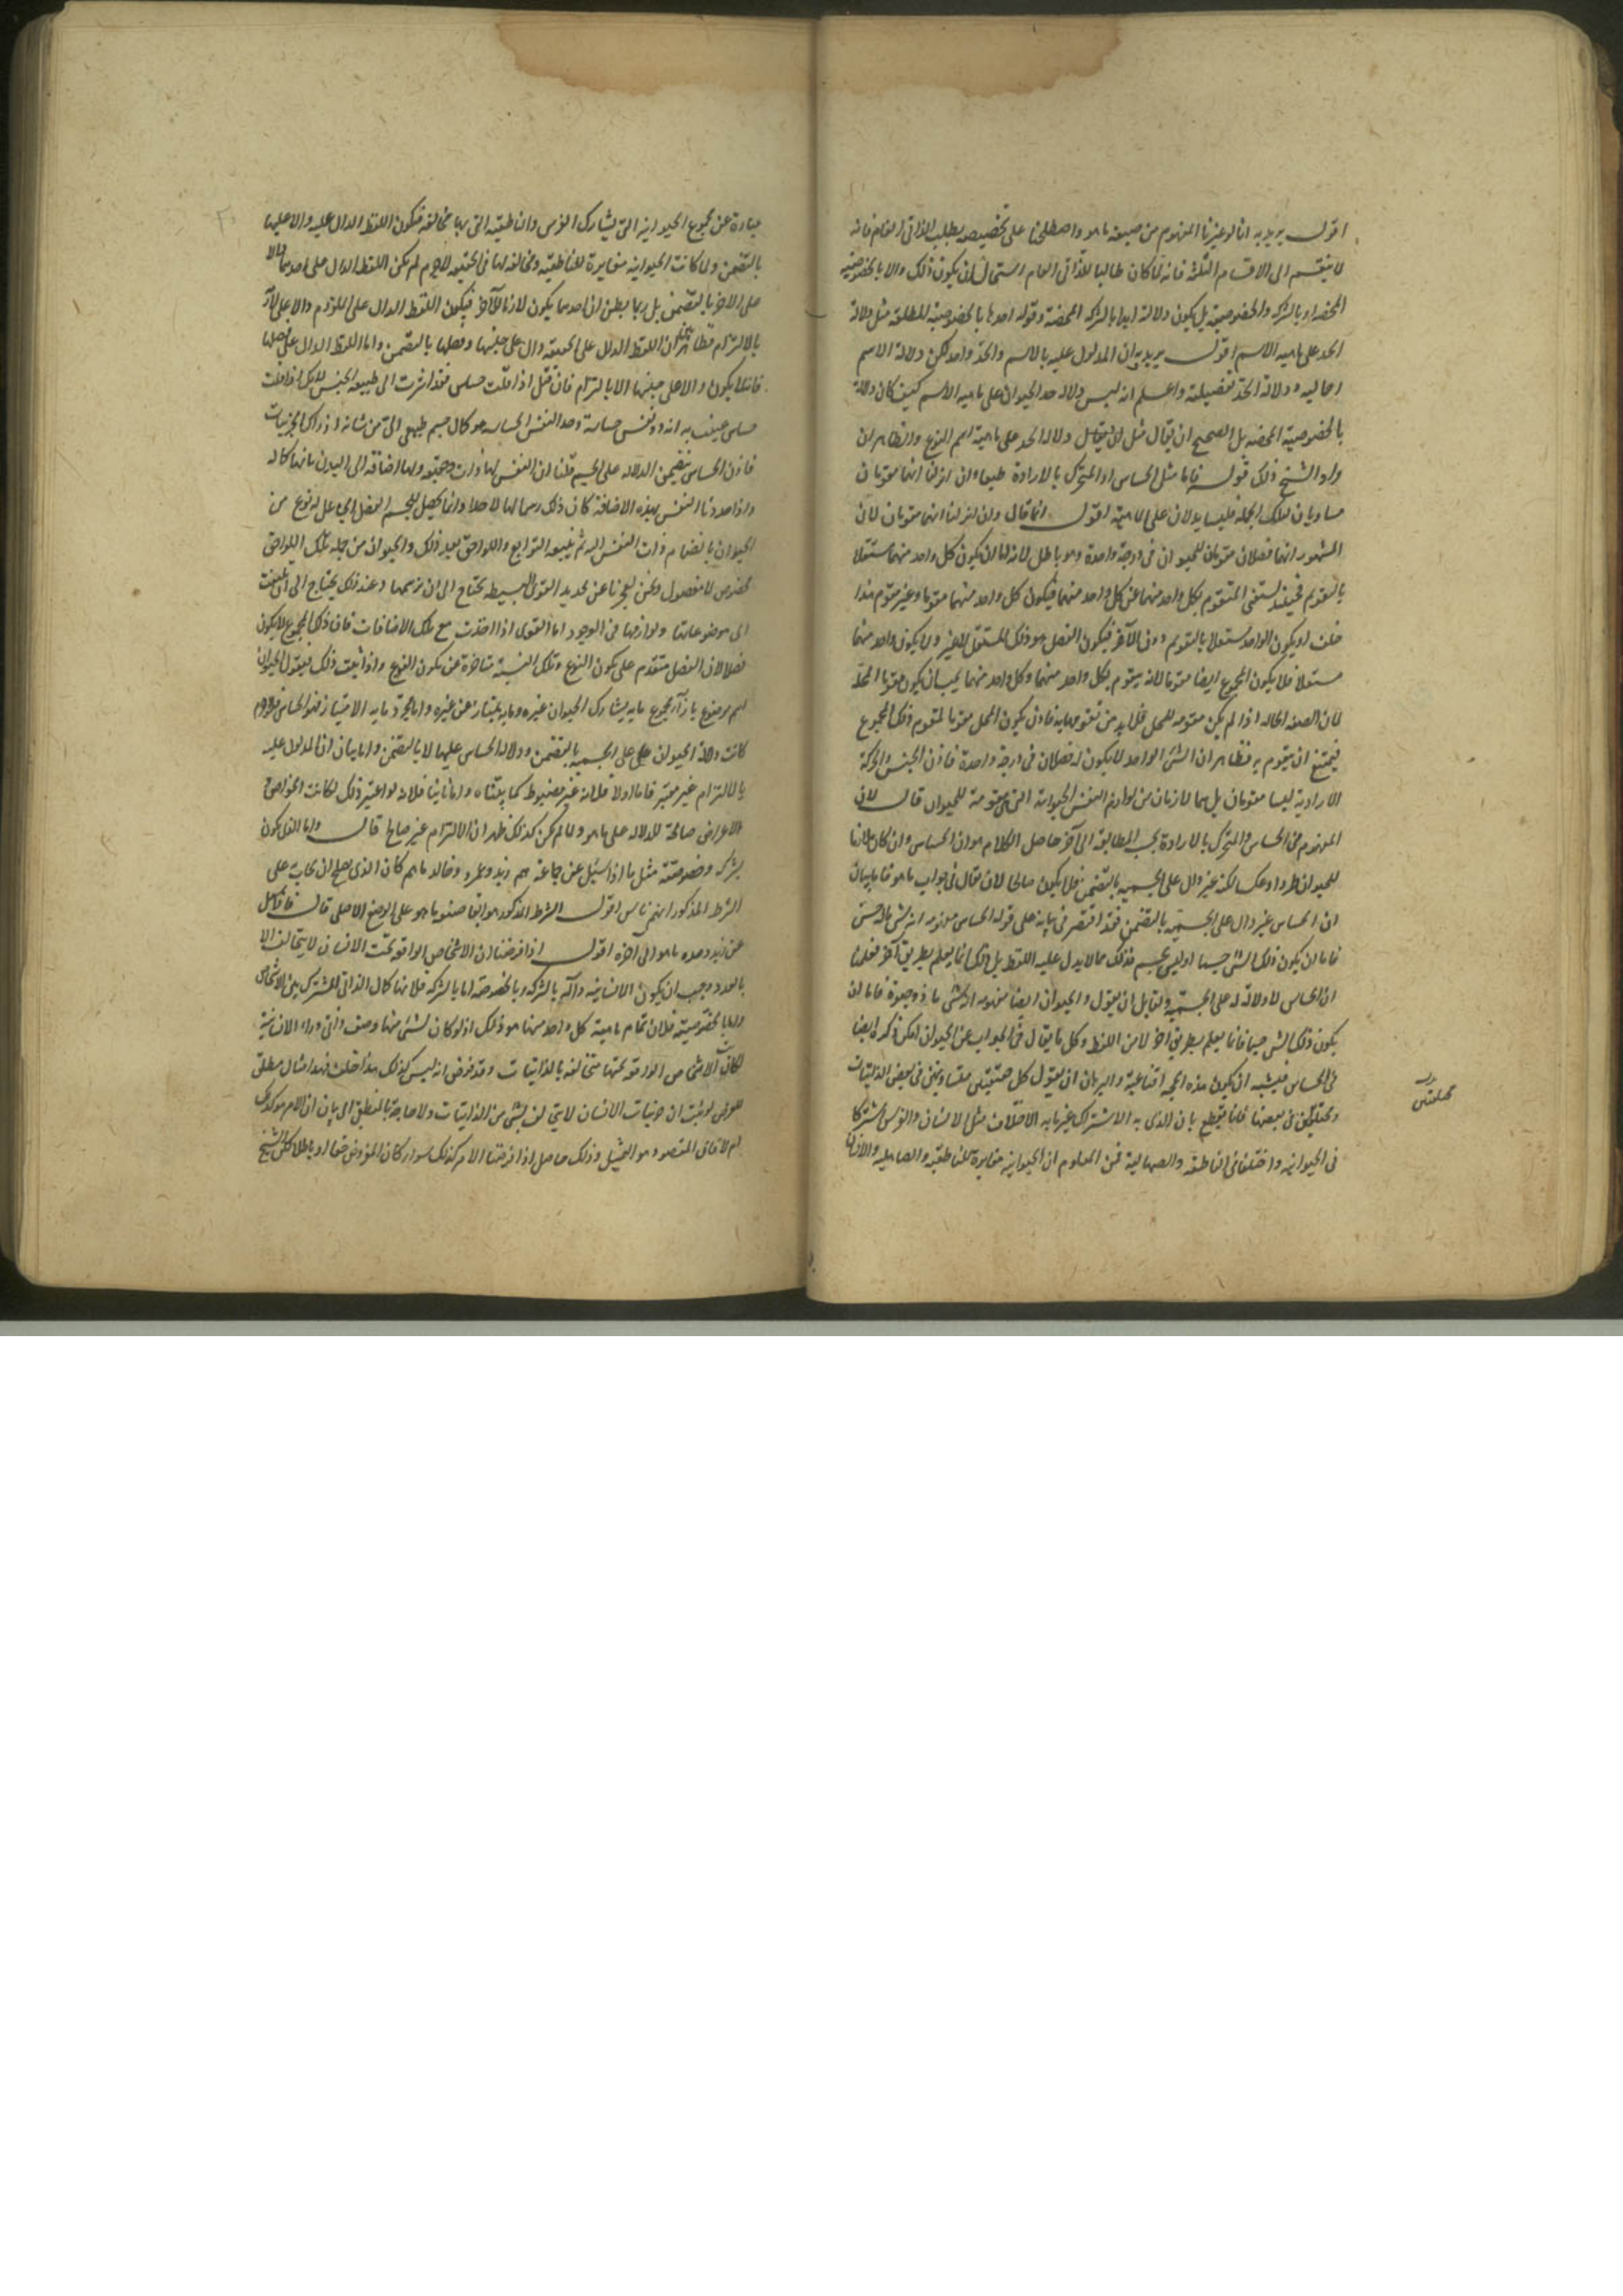 اقول يريد به انا لو غيرنا المفهوم من صيغة ما هو واصطلحنا على تخصيصه بطلب الذاتى العام فانه
لا ينقسم الى الاقسام الثلثة فانه لما كان طالبا للذاتى العام استحال ان يكون ذلك دالا بالخصوصية
المحضه او بالشركه والخصوصية بل يكون دلالة ابدا بالشركه المحضة وقوله احدها بالخصوصية المطلقة مثل دلالة
الحد على ماهية الاسم اقول يريد به ان المدلول عليه بالاسم والحد واحد لكن دلالة الاسم
اجماليه ودلالة الحد تفصيلية واعلم انه ليس دلاله حد الحيوان على ماهية الاسم كيف كان دلالة
بالخصوصية المحضه بل الصحيح ان يقال مثل دلاله الحد على ماهية اسم النوع والظاهر ان
مراد الشيخ ذلك قوله فاما مثل الحساس او المتحرك بالارادة طبعا وان انزلنا انهما مقومان
مساويان لتلك الجملة فليسا يدلان على الماهية اقول انما قال وان انزلنا انهما مقومان لان
المشهور انهما فصلان مقومان للحيوان فى درجة واحدة وهو باطل لانه اما ان يكون كل واحد منهما مستقلا
بالتقويم فحينئذ يستغنى المتقوم بكل واحد منهما عن كل واحد منهما فيكون كل واحد منهما مقوما وغير مقوم هذا
خلف او يكون الواحد مستقلا بالتقويم دون الآخر فيكون الفصل هو ذلك المستقل لا غير ولا يكون واحد منهما
مستقلا فلا يكون المجموع ايضا مقوما لانه يتقوم بكل واحد منهما وكل واحد منهما يجب ان يكون متقوما بالمحل
لان الصفه الحاله اذا لم يكن مقومه للمحل فلا بد من تقومها به فاذن يكون المحل مقوما لمقوم ذلك المجموع
فيمتنع ان يتقوم به فظاهر ان الشى الواحد لا يكون له فصلان فى درجة واحدة فاذن الحس والحركة
الارادية ليسا مقومان بل هما لازمان من لوازم النفس الحيوانية التى هى مقومة للحيوان قال لان
المفهوم من الحساس والمتحرك بالارادة بحسب المطابقة الى آخره حاصل الكلام هو ان الحساس وان كان ملازما
للحيوان طردا وعكسا لكنه غير دال على الجسمية بالتضمن فلا يكون صالحا لان يقال فى جواب ما هو فاما بيان
ان الحساس غير دال على الجسمية بالتضمن فقد اقتصر فى بيانه على قوله الحساس مفهومه انه شى ماله حس
فاما ان يكون ذلك الشى جسما او ليس بجسم فذلك مما لا يدل عليه اللفظ بل ذلك انما يعلم بطريق آخر فعلمنا
ان الحساس لا دلالة له على الجسمية ولقايل ان يقول والحيوان ايضا مفهومه انه شى ما ذو حيوة فاما ان
يكون ذلك الشى جسما فانما يعلم بطريق آخر لا من اللفظ وكل ما يقال فى الجواب عن الحيوان امكن ذكره ايضا
فى الحساس فيشبه ان يكون هذه الحجه اقناعية والبرهان ان يقول كل حقيقتين متساويتين فى بعض الذاتيات
ومختلفتين فى بعضها فانا نقطع بان الذى به الاشتراك غير ما به الاختلاف مثل الانسان والفرس اشتركا
فى الحيوانيه واختلفا فى الناطقه والصهالية فمن المعلوم ان الحيوانيه مغايرة للناطقيه والصاهليه والانسان
مختلفتين
عبارة عن مجموع الحيوانيه التى يشارك الفرس والناطقيه التى بها يخالفه فيكون اللفظ الدال عليه دالا عليهما
بالتضمن ولما كانت الحيوانيه مغايرة للناطقيه ومخالفه لها فى الحقيقه لا جرم لم يكن اللفظ الدال على احدهما دالا
على الاخر بالتضمن بل ربما يظن ان احدهما يكون لازما للآخر فيكون اللفظ الدال على الملزوم دالا على اللازم
بالالتزام فظاهر ان اللفظ الدال على الحقيقة دال على جنسها وفصلها بالتضمن واما اللفظ الدال على فصلها
فانه لا يكون دالا على جنسها الا بالالتزام فان قيل اذا قلت حساس فقد اشرت الى طبيعة الجنس لانك اذا قلت
حساس عنيت به انه ذو نفس حساسة وحد النفس الحساسه هو كمال جسم طبيعى الى من شانه ادراك الجزئيات
فاذن الحساس يتضمن الدلاله على الجسم قلنا ان النفس لها ذات وحقيقه ولها اضافه الى البدن بانها كماله
واذا حددنا النفس بهذه الاضافة كان ذلك رسما لها لا حدا وانما يحصل للجسم الفصل الذى يجعله نوع من
الحيوان بانضمام ذات النفس اليه ثم يتبعه التوابع واللواحق بعد ذلك والحيوان من جمله تلك اللواحق
كخواص لا فصول ونحن لعجزنا عن تحديد القوى البسيطه نحتاج الى ان نرسمها وعند ذلك يحتاج الى ان يلتفت
الى موضوعاتها ولوازمها فى الوجود اما القوى اذا اخذت مع تلك الاضافات فان ذلك المجموع لا يكون
فصلا لان الفصل متقدم على كون النوع وتلك النسبة متاخرة عن كون النوع واذا ثبت ذلك فيقول الحيوان
اسم موضوع بازاء مجموع ما به يشارك الحيوان غيره وما به يمتاز عن غيره واما مجرد ما به الامتياز فهو الحساس فلا جرم
كانت دلالة الحيوان على الجسمية بالتضمن ودلالة الحساس عليها لا بالتضمن واما بيان ان المدلول عليه
بالالتزام غير معتبر فاما اولا فلانه غير مضبوط كما بيناه واما ثانيا فلانه لو اعتبر ذلك لكانت الخواص و
الاعراض صالحة للدلاله على ما هو ولما لم يكن كذلك ظهر ان الالتزام غير صالح قال واما الذى يكون
بشركه وخصوصية مثل ما اذا سئل عن جماعة هم زيد وعمرو وخالد ما هم كان الذى يصلح ان يجاب على
الشرط المذكور انهم ناس اقول الشرط المذكور هو ابقا صيغة ما هو على الوضع الاصلى قال فاذا سئل
عن زيد وحده ما هو الى آخره اقول اذا فرضنا ان الاشخاص الواقعة تحت الانسان لا يتخالف الا
بالعدد وجب ان يكون الانسانيه دالة بالشركه وبالخصوصيه اما بالشركه فلانها كمال الذاتى المشترك بين الاشخاص
واما بالخصوصية فلان تمام ماهية كل واحد منها هو ذلك اذ لو كان لشى منها وصف ذاتى وراء الانسانية
لكانت الاشخاص الواقعة تحتها متخالفه بالذاتيات وقد فرض انه ليس كذلك هذا خلف فهذا مثال مطلق
للغرض ان جزئيات الانسان لا يتخالف بشى من الذاتيات ولا حاجة بالمنطق الى بيان ان الامر هو كذلك
ام لا فان المقصود هو التمثيل وذلك حاصل اذا فرضنا الامر كذلك سواء كان المفروض حقا او باطلا لكن الشيخ